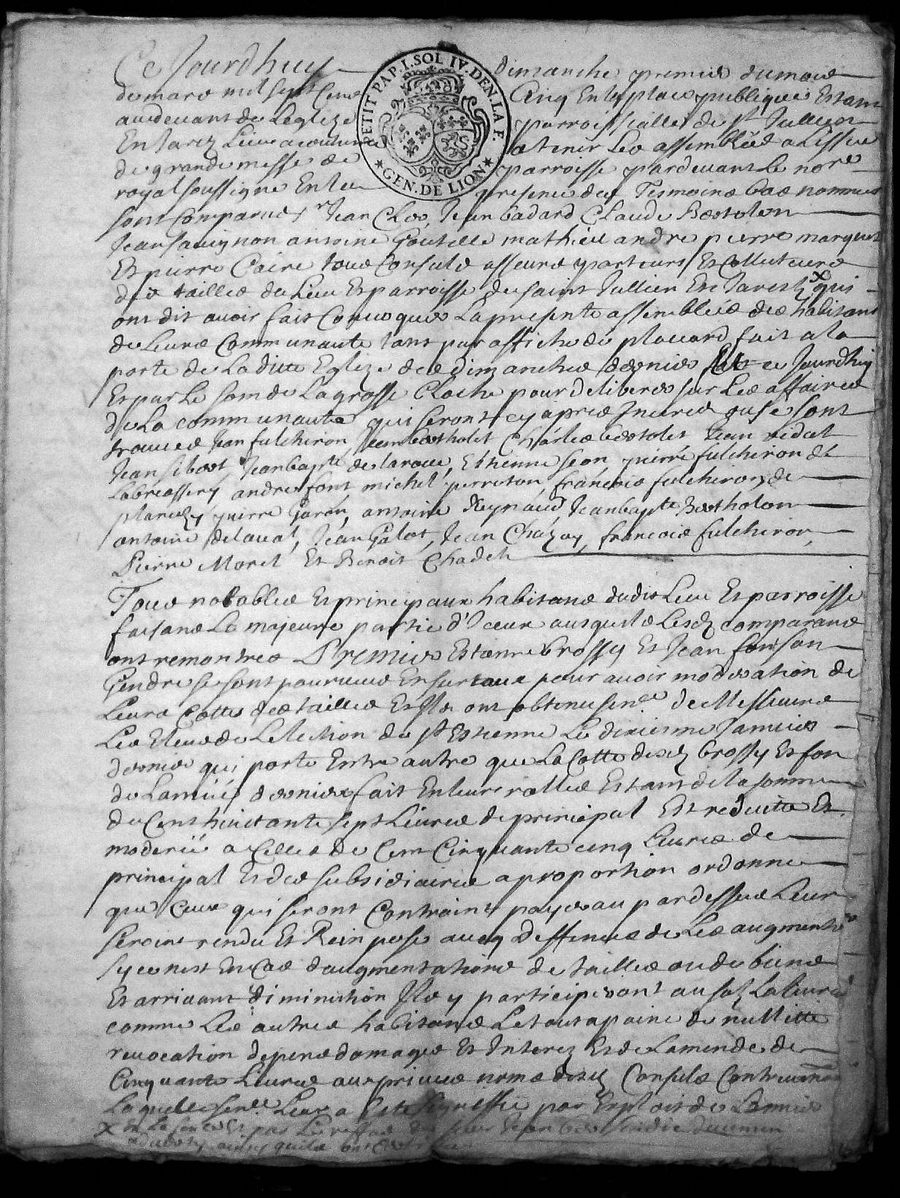 PETIT PAP. I. SOL IV. DEN. LA F.
GEN. DE LION
Ce Jourdhuy dimanche premier du mois
de mars mil sept cens cinq En la place publique Estant
au devant de Leglize parroissialle de St Jullien
En Jarez Lieu accoutume a tenir Les assemblées a Lissue
de grande messe de parroisse pardevant Le nore
royal soussigne En la presence des Temoins bas nommes
sont comparus Sr Jean Clos, Jean badard Claude Bertolon
Jean Savignon antoine Goutelle mathieu andre pierre marquet
Et pierre Caire tous Consuls asseurs parteurs Et Collecteurs
des tailles du Lieu Et parroisse de Saint Jullien En Jarest x qui
ont dit avoir fait Convoquer La presente assemblée des habitans
de Leurs Communauté tant par affiche de placard fait a la
porte de Laditte Eglize dimanche dernier ce Jourdhuy
Et par Le son de La grosse Cloche pour deliberer sur Les affaires
de La communauté qui seront cy apres Inserés ou se sont
trouves Jean fulchiron Jean bertholet Charles bertolet Jean vidal
Jean sibert Jean bapte delaroue, Estienne Jean pierre fulchiron de
Labrossery andre font michel perreton françois fulchiron de
pierre Garon antoine Reynaud Jean bapte Bertholon
antoine delaval, Jean Galot, Jean Chazay, françois fulchiron,
Pierre Morel Et Benoit Chadel
Tous notables Et principaux habitans dudit Lieu Et parroisse
faisans La majeure partie d'Iceux ausquels Lesd comparans
ont remontré Premier Estienne brossy Et Jean fon son
Gendre se sont pourvus En surtaux pour avoir moderation de
Leurs Cottes des tailles Et Ils ont obtenu sence de Messieurs
Les Eleus de Lelection de St Estienne Le dixieme Janvier
dernier qui porte Entre autre que La Cotte desd brossy Et fon
de Lannée derniere fait En leurs rolles Estant de la somme
de Cent huictante sept Livres de principal Est reduitte Et
moderée a Celle de Cent Cinquante cinq Livres de
principal Et des subsidiaires a proportion ordonne
que Ceux qui seront Contraint payer au pardessus Leur
seront rendu Et Reimposé avec deffences de Les augmenter
sy ce nest En Cas d'augmentations de tailles ou de biens
Et arrivant diminution Ils y participeront au sol La Livre
comme Les autres habitans Le tout a paine de nullitté
revocation depens domages Et Interez Et de Lamende de
Cinquante Livres aux privés noms desd Consuls Contrevenans
Laquelle sence Leur a Esté signiffié par Exploit de Lannée